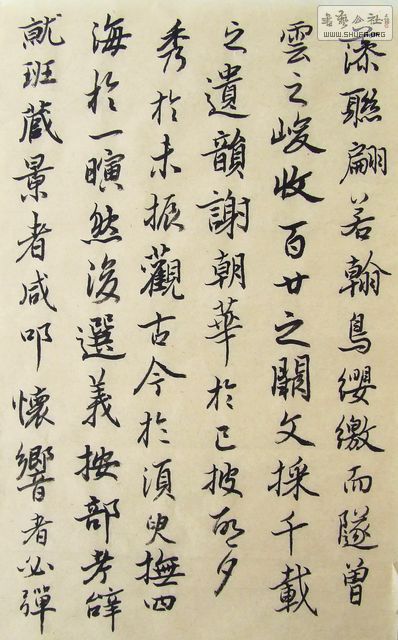 書藝公社
WWW.SHUFA.ORG
藻聯翩若翰鳥纓繳而隧曾
雲之峻收百世之闕文採千載
之遺韻謝朝華於已披啟夕
秀於未振觀古今於須臾撫四
海於一瞬然後選義按部考辭
就班藏景者咸叩懷響者必彈